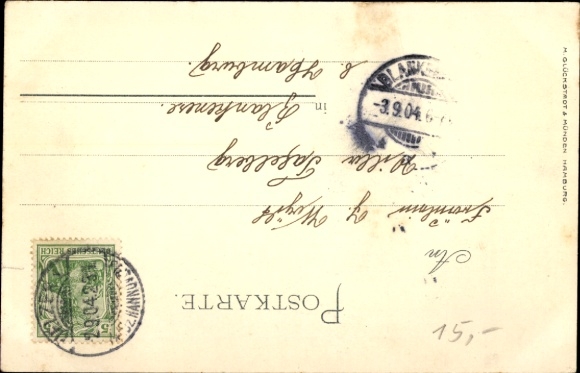 POSTKARTE.
An
Fräulein J. Weyhe
Villa Tafelberg
in Blankenese.
b. Hamburg
DEUTSCHES REICH
5
2.9.04.
BLANKENESE
-3.9.04.6-7
M. GLÜCKSTADT & MÜNDEN, HAMBURG.
15,-